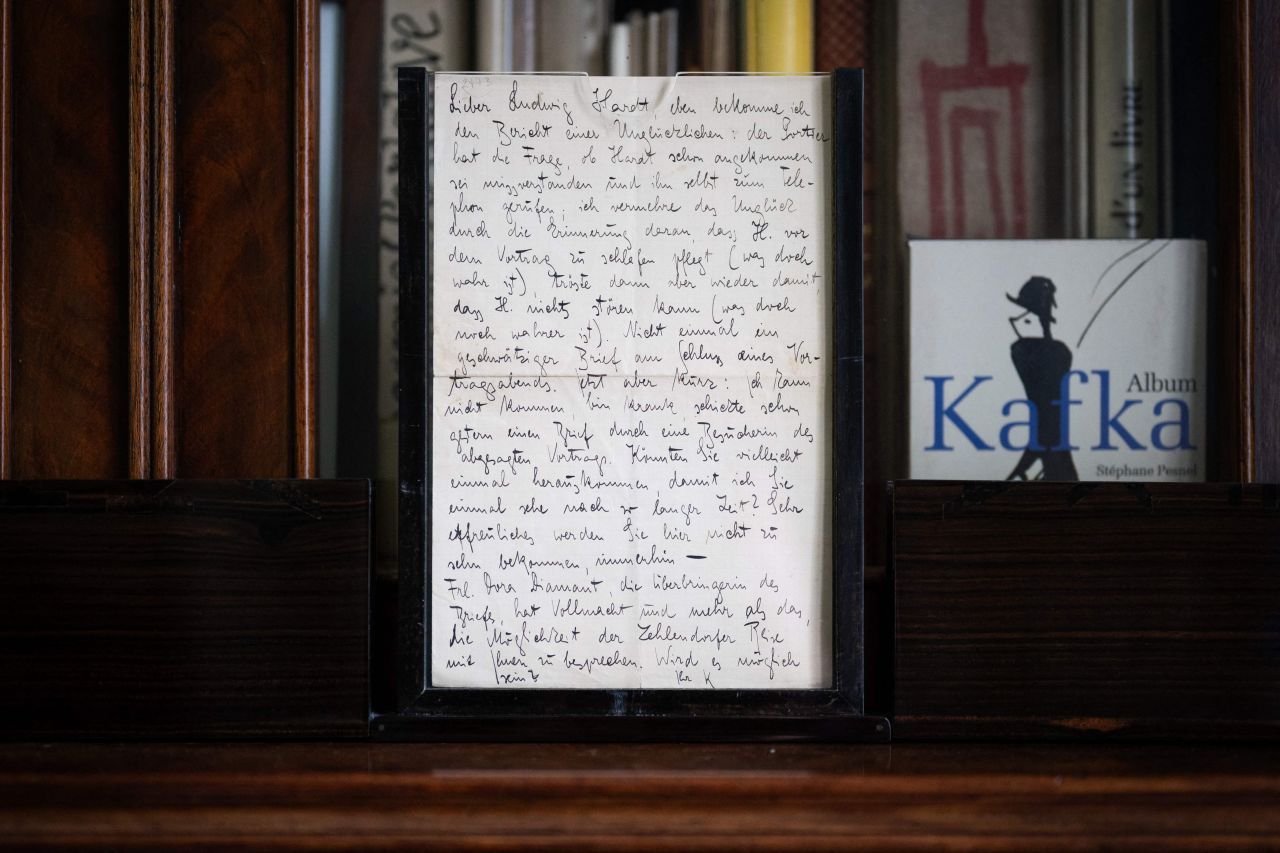 Lieber Ludwig Hardt, eben bekomme ich
den Bericht einer Unglücklichen: der Portier
hat die Frage, ob Hardt schon angekommen
sei missverstanden und ihn selbst zum Tele-
phon gerufen; ich vermehre das Unglück
durch die Erinnerung daran, dass H. vor
dem Vortrag zu schlafen pflegt (was doch
wahr ist), tröste dann aber wieder damit,
dass H. nichts stören kann (was doch
noch wahrer ist). Nicht einmal ein
geschwätziger Brief am Schluss eines Vor-
tragsabends. Jetzt aber kurz: ich kann
nicht kommen, bin krank, schickte schon
gestern einen Brief durch eine Besucherin des
abgesagten Vortrags. Könnten Sie vielleicht
einmal herauskommen, damit ich Sie
einmal sehe nach so langer Zeit? Sehr
erfreuliches werden Sie hier nicht zu
sehn bekommen, immerhin —
Frl. Dora Diamant, die Überbringerin des
Briefes, hat Vollmacht und mehr als das,
die Möglichkeit der Zehlendorfer Reise
mit Ihnen zu besprechen. Wird es möglich
sein?
Ihr K
d'un livre
Album
Kafka
Stéphane Pesnel